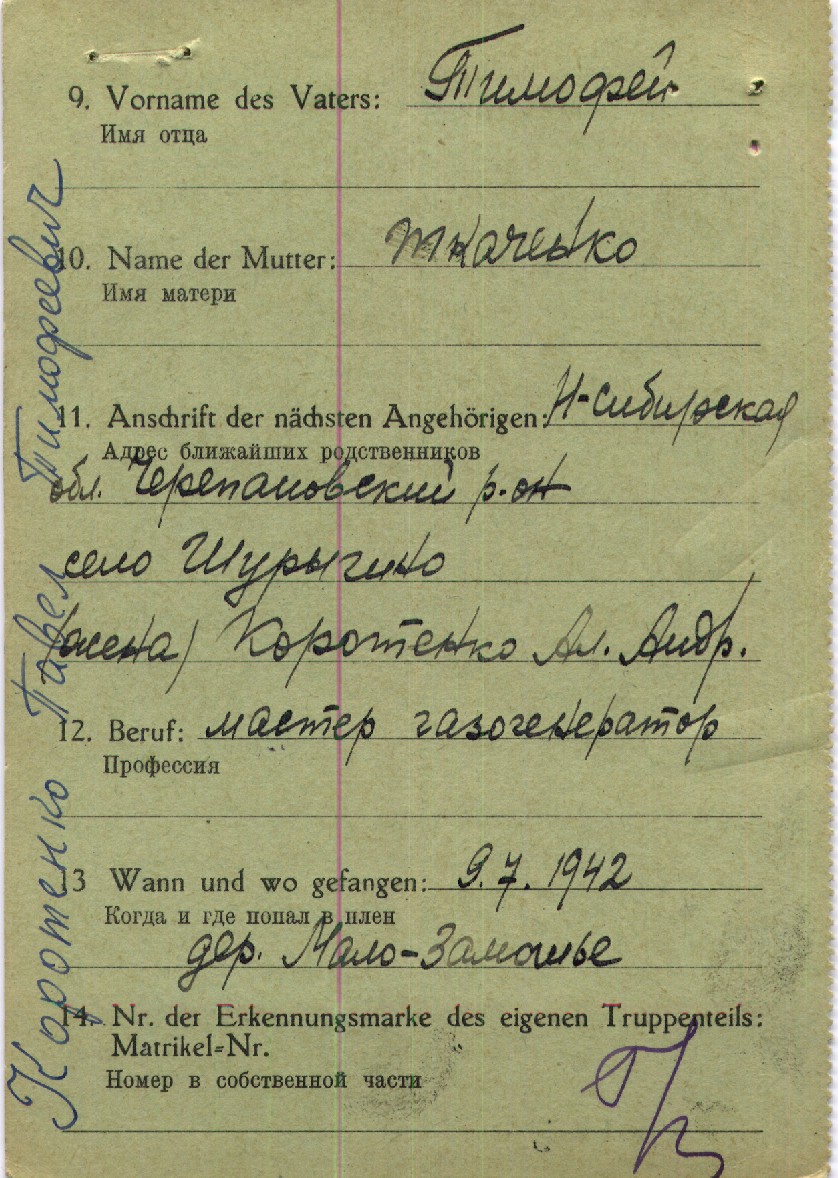 9. Vorname des Vaters: Тимофей
Имя отца
10. Name der Mutter: Ткаченко
Имя матери
11. Anschrift der nächsten Angehörigen: Н-Сибирская
Адрес ближайших родственников
обл. Черепановский р-он
село Шурыгино
(жена) Коротенко Ал. Андр.
12. Beruf: мастер газогенератор
Профессия
13 Wann und wo gefangen: 9.7.1942
Когда и где попал в плен
дер. Мало-Замошье
14. Nr. der Erkennungsmarke des eigenen Truppenteils:
Matrikel-Nr.
Номер в собственной части
Коротенко Павел Тимофеевич